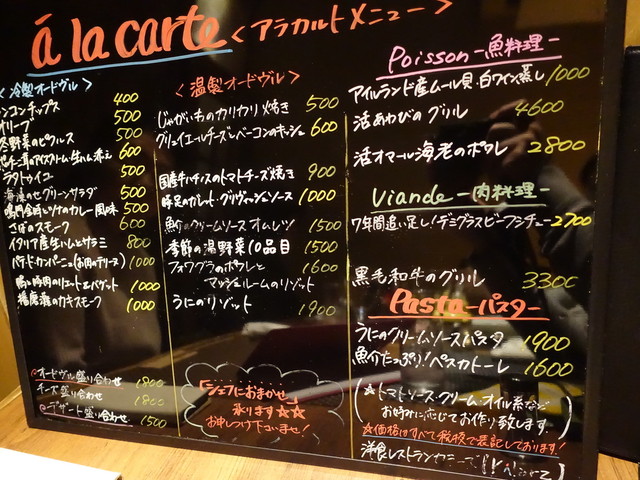 á la carte <アラカルトメニュー>
<冷製オードヴル>
コンチップス 400
オリーブ 500
冬野菜のピクルス 500
生ハム添え 600
ラタトゥイユ 500
海藻のせグリーンサラダ 500
鳴門金時とツナのカレー風味 500
さばのスモーク 600
イタリア産生ハムとサラミ 800
パテドカンパーニュ(お肉のテリーヌ) 1000
鴨と豚肉のリエット&バゲット 1000
播磨灘のカキスモーク 1000
オードヴル盛り合わせ 1800
チーズ盛り合わせ 1800
デザート盛り合わせ 1500
<温製オードヴル>
じゃがいものカリカリ焼き 500
グリュイエールチーズとベーコンのキッシュ 600
国産牛ハチノスのトマトチーズ焼き 900
豚足のガレット・グリヴィッシュソース 1000
魚介のクリームソースオムレツ 1500
季節の温野菜10品目 1500
フォワグラのポワレと 1600
マッシュルームのリゾット
うにのリゾット 1900
「シェフにおまかせ」
承ります☆☆
お申しつけ下さいませ!
Poisson -魚料理-
アイルランド産ムール貝・白ワイン蒸し 1000
活あわびのグリル 4600
活オマール海老のポワレ 2800
Viande -肉料理-
7年間追い足し!デミグラスビーフシチュー 2700
黒毛和牛のグリル 3300
Pasta -パスタ-
うにのクリームソースパスタ 1900
魚介たっぷり!ペスカトーレ 1600
(☆トマトソース・クリーム・オイル系など
お好みに応じてお作り致します。)
☆価格はすべて税抜で表記しております!
洋食レストラン